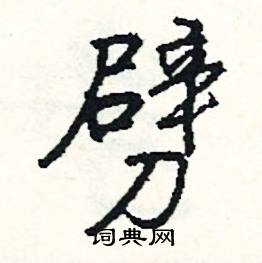 劈
词典网